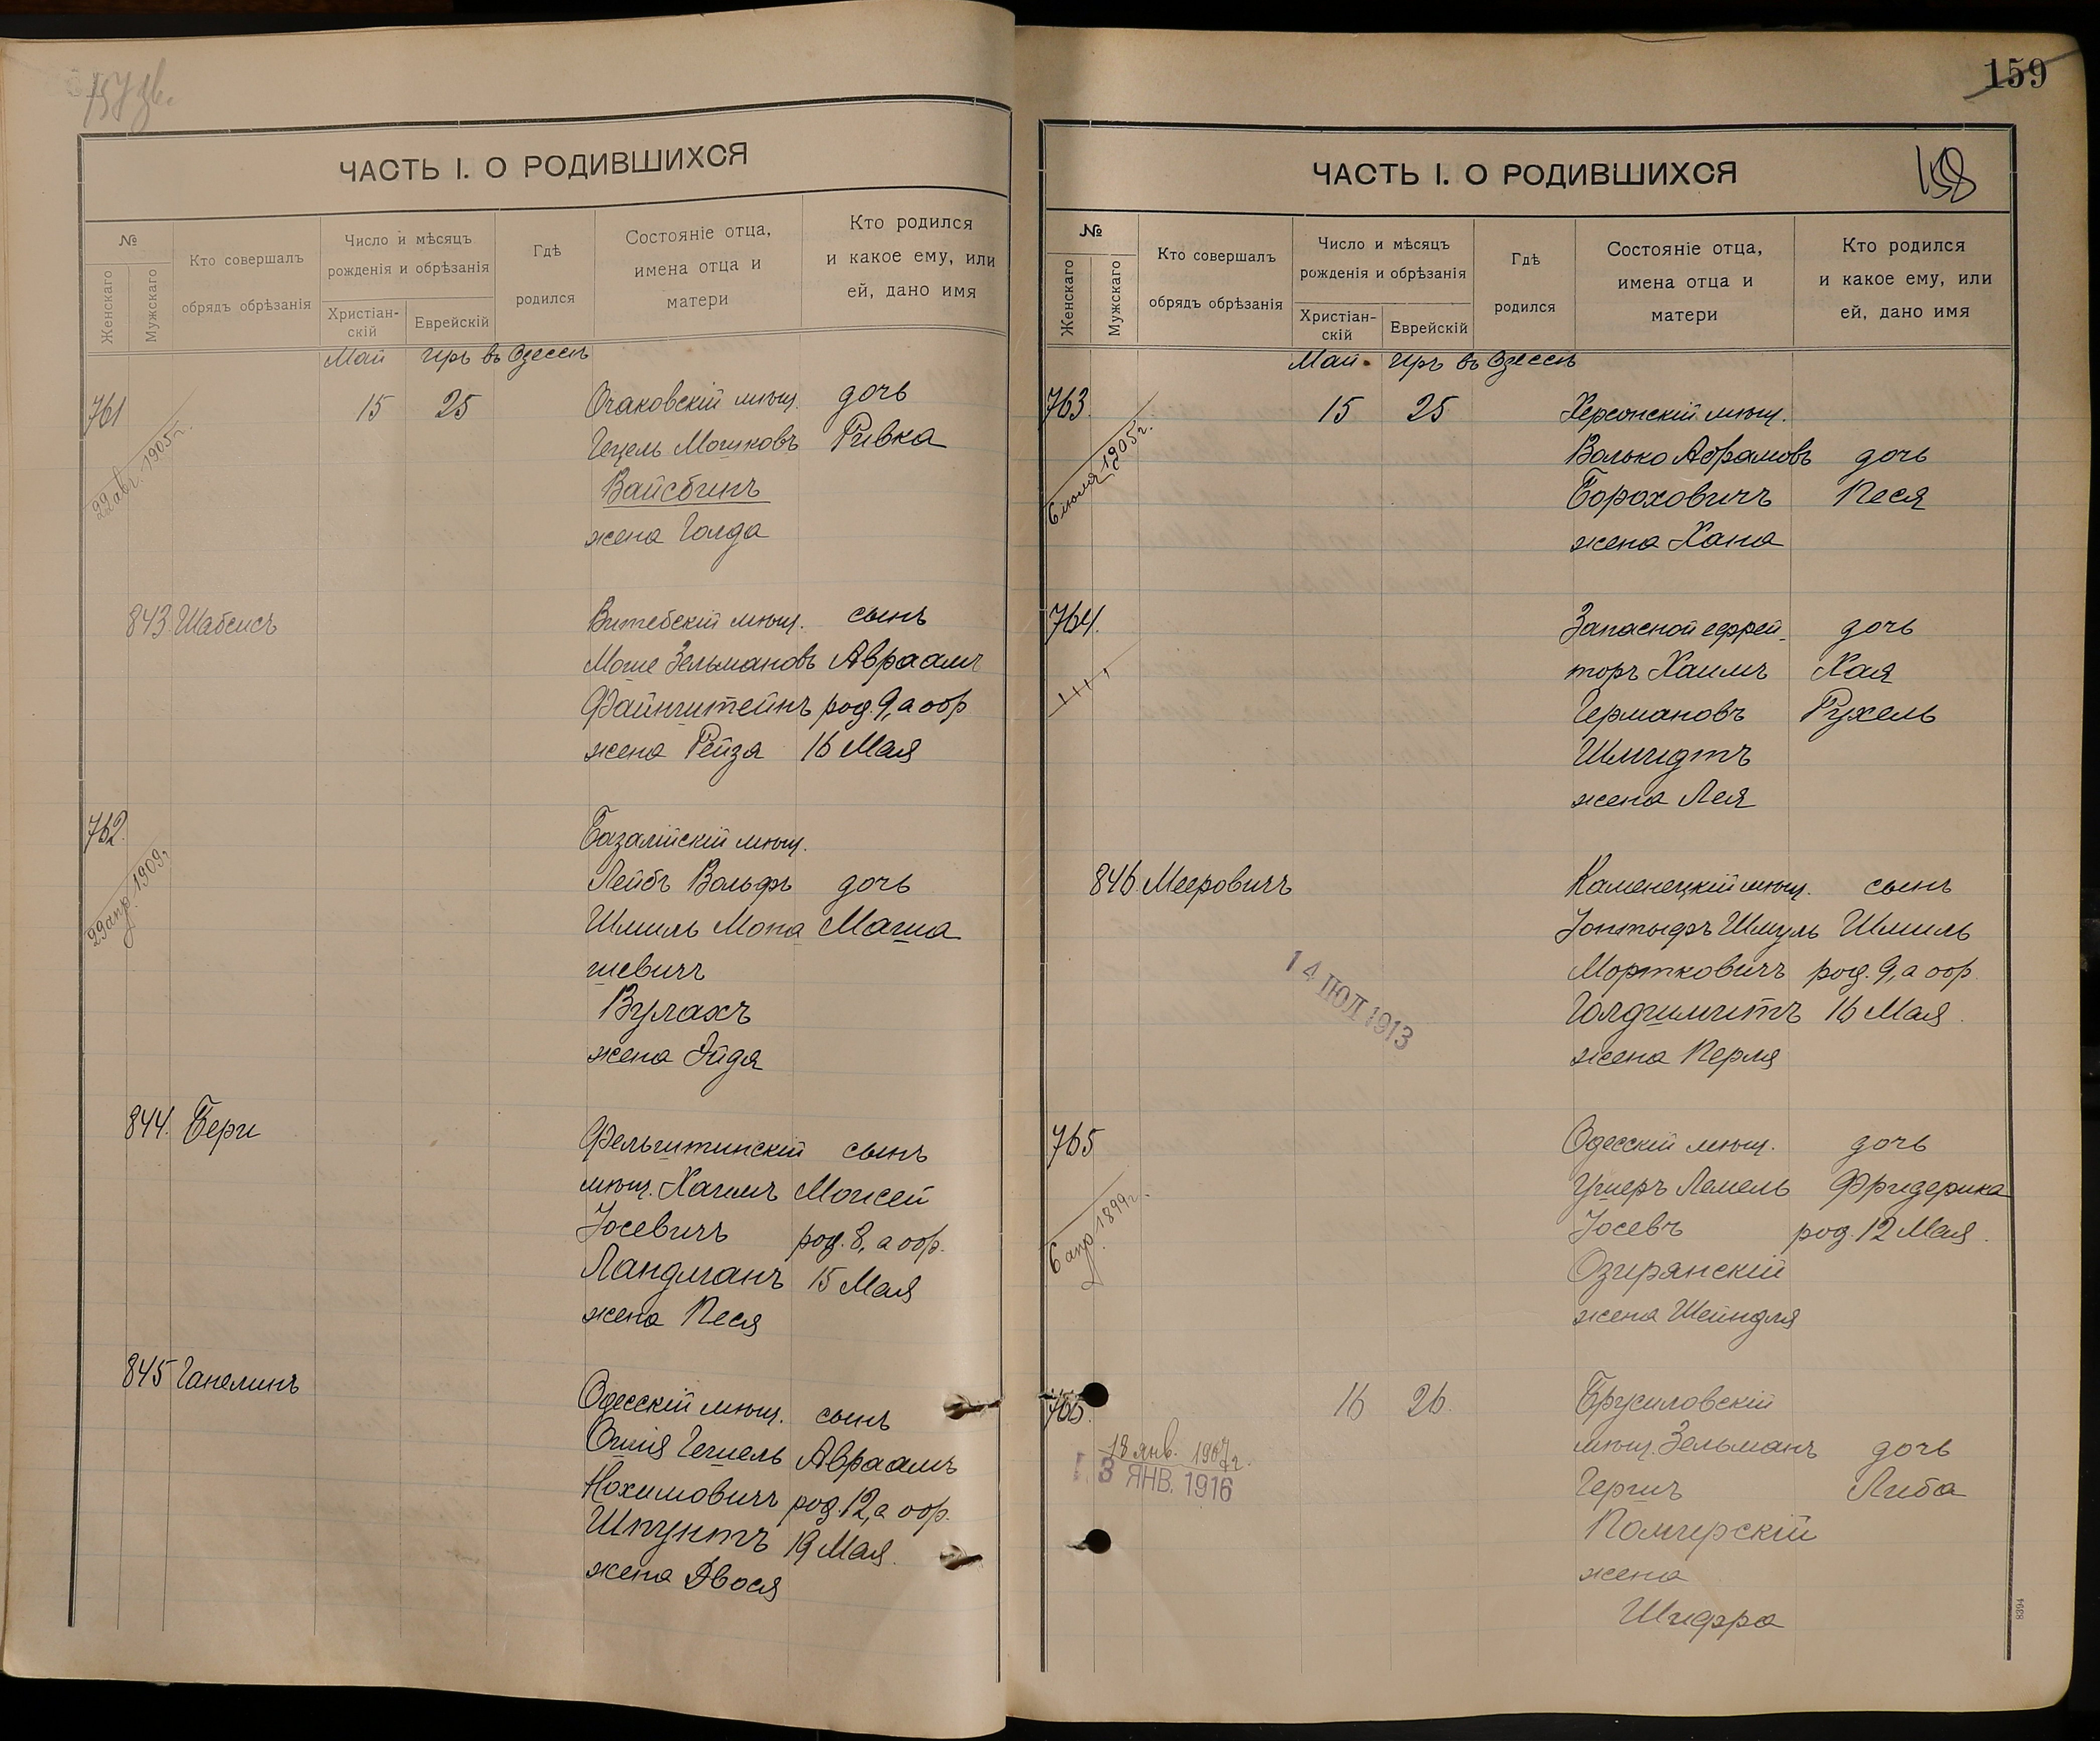 ЧАСТЬ I. О РОДИВШИХСЯ
№
Женскаго
Мужскаго
Кто совершалъ
обрядъ обрѣзанія
Число и мѣсяцъ
рожденія и обрѣзанія
Христіан-
скій
Еврейскій
Гдѣ
родился
Состояніе отца,
имена отца и
матери
Кто родился
и какое ему, или
ей, дано имя
Май Иръ въ Одессѣ
761 15 25 Очаковскій мѣщ. дочь
22 авг. 1905 г.
Гецель Мошковъ Ривка
Вайсбинъ
жена Голда
843. Шабсисъ Витебскій мѣщ. сынъ
Моше Зельмановъ Авраамъ
Файнштейнъ род. 9, а обр
жена Рейза 16 Мая
762. Базалійскій мѣщ.
29 апр. 1909 г.
Лейбъ Вольфъ дочь
Шмиль Мона Маша
шевичъ
Вулахъ
жена Эйдя
844. Бери Фельштинскій сынъ
мѣщ. Хаимъ Моисей
Іосевичъ род. 8, а обр.
Ландманъ 15 Мая
жена Песя
845 Ганелинъ Одесскій мѣщ. сынъ
Ошія Гешель Авраамъ
Нохимовичъ род. 12, а обр.
Шпунтъ 19 Мая.
жена Двося
159
ЧАСТЬ I. О РОДИВШИХСЯ
158
№
Женскаго
Мужскаго
Кто совершалъ
обрядъ обрѣзанія
Число и мѣсяцъ
рожденія и обрѣзанія
Христіан-
скій
Еврейскій
Гдѣ
родился
Состояніе отца,
имена отца и
матери
Кто родился
и какое ему, или
ей, дано имя
Май. Иръ въ Одессѣ
763. 15 25 Херсонскій мѣщ.
6 іюля 1905 г.
Волько Абрамовъ дочь
Бороховичъ Песя
жена Хана
764. Запасной ефрей- дочь
торъ Хаимъ Хая
Германовъ Рухель
Шмидтъ
жена Лея
846. Мееровичъ Каменецкій мѣщ. сынъ
Іонтыфъ Шмуль Шмиль
Мортковичъ род. 9, а обр.
Голдшмитъ 16 Мая.
жена Перля
14 ІЮЛ 1913
765 Одесскій мѣщ. дочь
6 апр. 1899 г.
Ушеръ Лемель Фридерика
Іосевъ род. 12 Мая.
Озирянскій
жена Шейндля
766. 16 26. Брусиловскій
мѣщ. Зельманъ дочь
Гершъ Либа
Помирскій
жена
Шифра
13 янв. 1907 г.
13 ЯНВ. 1916
8394